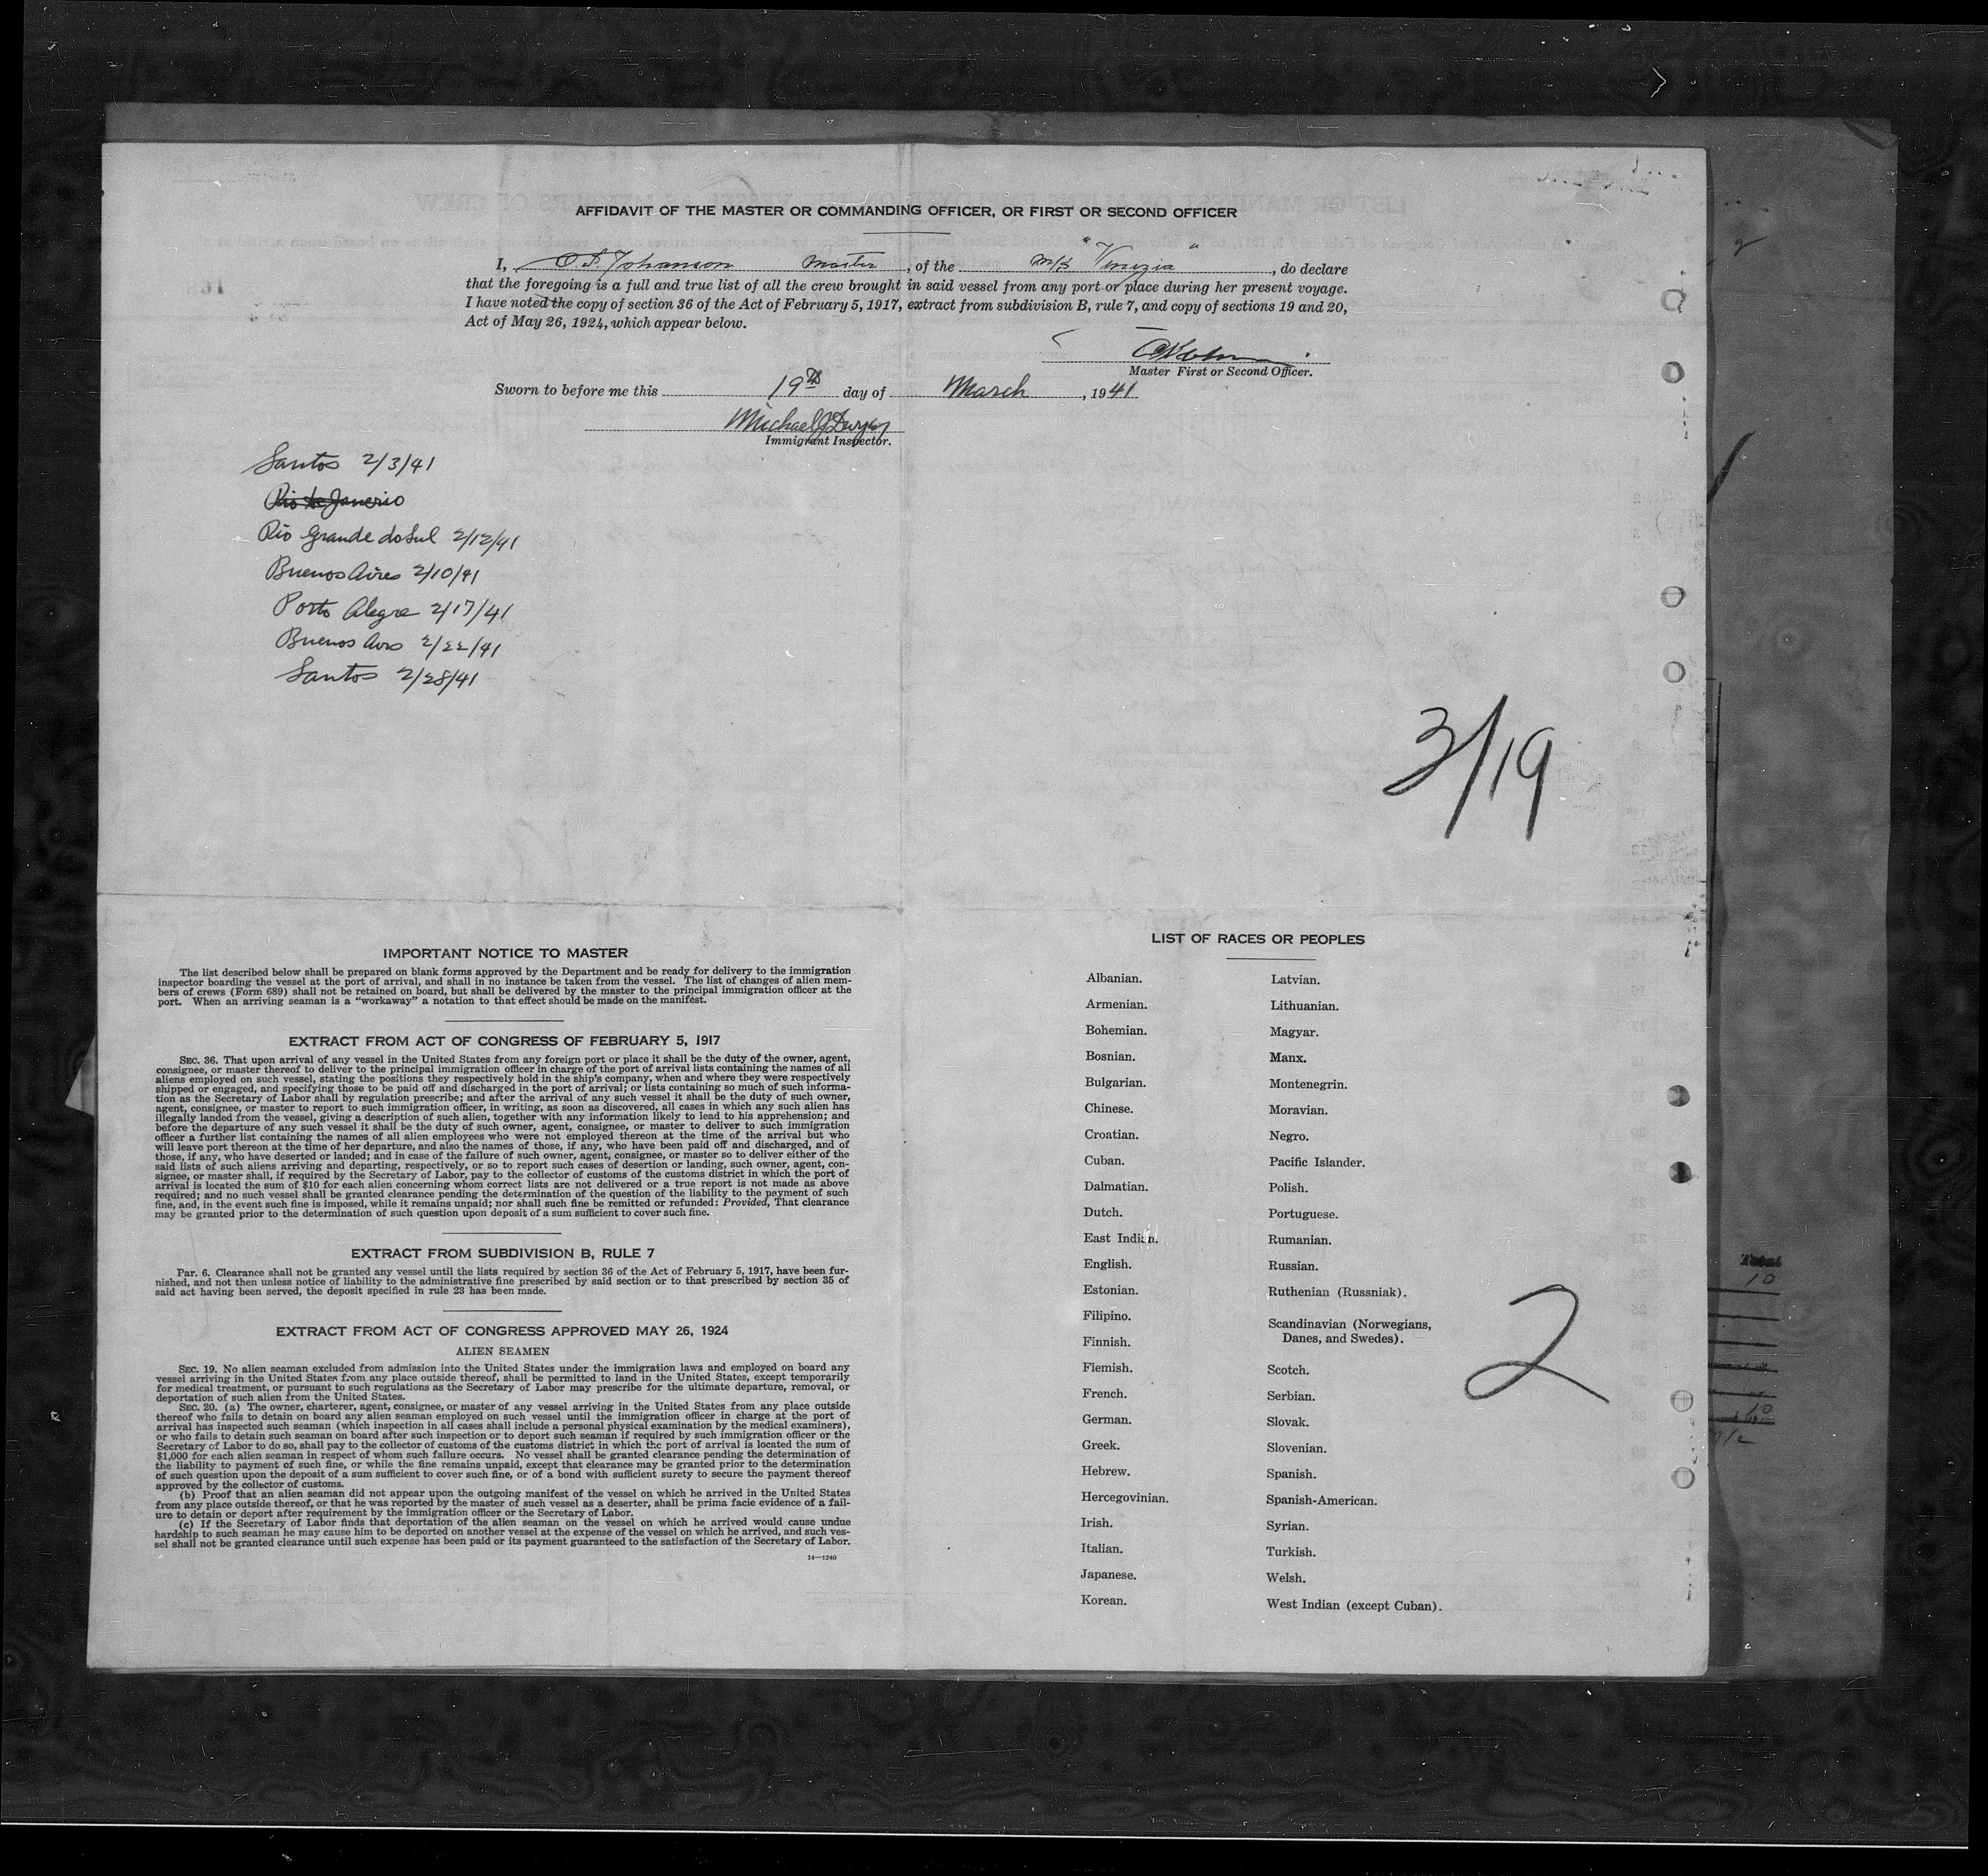 AFFIDAVIT OF THE MASTER OR COMMANDING OFFICER, OR FIRST OR SECOND OFFICER
I, O. F. Johanson Master, of the M/S "Venezia", do declare
that the foregoing is a full and true list of all the crew brought in said vessel from any port or place during her present voyage.
I have noted the copy of section 36 of the Act of February 5, 1917, extract from subdivision B, rule 7, and copy of sections 19 and 20,
Act of May 26, 1924, which appear below.
Master First or Second Officer.
Sworn to before me this 19th day of March, 1941
Michael J Dwyer
Immigrant Inspector.
Santos 2/3/41
Rio de Janerio
Rio Grande do Sul 2/12/41
Buenos Aires 2/10/41
Porto Alegre 2/17/41
Buenos Aires 2/22/41
Santos 2/28/41
3/19
IMPORTANT NOTICE TO MASTER
The list described below shall be prepared on blank forms approved by the Department and be ready for delivery to the immigration
inspector boarding the vessel at the port of arrival, and shall in no instance be taken from the vessel. The list of changes of alien mem-
bers of crews (Form 689) shall not be retained on board, but shall be delivered by the master to the principal immigration officer at the
port. When an arriving seaman is a "workaway" a notation to that effect should be made on the manifest.
EXTRACT FROM ACT OF CONGRESS OF FEBRUARY 5, 1917
SEC. 36. That upon arrival of any vessel in the United States from any foreign port or place it shall be the duty of the owner, agent,
consignee, or master thereof to deliver to the principal immigration officer in charge of the port of arrival lists containing the names of all
aliens employed on such vessel, stating the positions they respectively hold in the ship's company, when and where they were respectively
shipped or engaged, and specifying those to be paid off and discharged in the port of arrival; or lists containing so much of such informa-
tion as the Secretary of Labor shall by regulation prescribe; and after the arrival of any such vessel it shall be the duty of such owner,
agent, consignee, or master to report to such immigration officer, in writing, as soon as discovered, all cases in which any such alien has
illegally landed from the vessel, giving a description of such alien, together with any information likely to lead to his apprehension; and
before the departure of any such vessel it shall be the duty of such owner, agent, consignee, or master to deliver to such immigration
officer a further list containing the names of all alien employees who were not employed thereon at the time of the arrival but who
will leave port thereon at the time of her departure, and also the names of those, if any, who have been paid off and discharged, and of
those, if any, who have deserted or landed; and in case of the failure of such owner, agent, consignee, or master so to deliver either of the
said lists of such aliens arriving and departing, respectively, or so to report such cases of desertion or landing, such owner, agent, con-
signee, or master shall, if required by the Secretary of Labor, pay to the collector of customs of the customs district in which the port of
arrival is located the sum of $10 for each alien concerning whom correct lists are not delivered or a true report is not made as above
required; and no such vessel shall be granted clearance pending the determination of the question of the liability to the payment of such
fine, and, in the event such fine is imposed, while it remains unpaid; nor shall such fine be remitted or refunded: Provided, That clearance
may be granted prior to the determination of such question upon deposit of a sum sufficient to cover such fine.
EXTRACT FROM SUBDIVISION B, RULE 7
Par. 6. Clearance shall not be granted any vessel until the lists required by section 36 of the Act of February 5, 1917, have been fur-
nished, and not then unless notice of liability to the administrative fine prescribed by said section or to that prescribed by section 35 of
said act having been served, the deposit specified in rule 23 has been made.
EXTRACT FROM ACT OF CONGRESS APPROVED MAY 26, 1924
ALIEN SEAMEN
SEC. 19. No alien seaman excluded from admission into the United States under the immigration laws and employed on board any
vessel arriving in the United States from any place outside thereof, shall be permitted to land in the United States, except temporarily
for medical treatment, or pursuant to such regulations as the Secretary of Labor may prescribe for the ultimate departure, removal, or
deportation of such alien from the United States.
SEC. 20. (a) The owner, charterer, agent, consignee, or master of any vessel arriving in the United States from any place outside
thereof who fails to detain on board any alien seaman employed on such vessel until the immigration officer in charge at the port of
arrival has inspected such seaman (which inspection in all cases shall include a personal physical examination by the medical examiners),
or who fails to detain such seaman on board after such inspection or to deport such seaman if required by such immigration officer or the
Secretary of Labor to do so, shall pay to the collector of customs of the customs district in which the port of arrival is located the sum of
$1,000 for each alien seaman in respect of whom such failure occurs. No vessel shall be granted clearance pending the determination of
the liability to payment of such fine, or while the fine remains unpaid, except that clearance may be granted prior to the determination
of such question upon the deposit of a sum sufficient to cover such fine, or of a bond with sufficient surety to secure the payment thereof
approved by the collector of customs.
(b) Proof that an alien seaman did not appear upon the outgoing manifest of the vessel on which he arrived in the United States
from any place outside thereof, or that he was reported by the master of such vessel as a deserter, shall be prima facie evidence of a fail-
ure to detain or deport after requirement by the immigration officer or the Secretary of Labor.
(c) If the Secretary of Labor finds that deportation of the alien seaman on the vessel on which he arrived would cause undue
hardship to such seaman he may cause him to be deported on another vessel at the expense of the vessel on which he arrived, and such ves-
sel shall not be granted clearance until such expense has been paid or its payment guaranteed to the satisfaction of the Secretary of Labor.
14—1240
LIST OF RACES OR PEOPLES
Albanian.
Armenian.
Bohemian.
Bosnian.
Bulgarian.
Chinese.
Croatian.
Cuban.
Dalmatian.
Dutch.
East Indian.
English.
Estonian.
Filipino.
Finnish.
Flemish.
French.
German.
Greek.
Hebrew.
Hercegovinian.
Irish.
Italian.
Japanese.
Korean.
Latvian.
Lithuanian.
Magyar.
Manx.
Montenegrin.
Moravian.
Negro.
Pacific Islander.
Polish.
Portuguese.
Rumanian.
Russian.
Ruthenian (Russniak).
Scandinavian (Norwegians,
Danes, and Swedes).
Scotch.
Serbian.
Slovak.
Slovenian.
Spanish.
Spanish-American.
Syrian.
Turkish.
Welsh.
West Indian (except Cuban).
2
Total
10
10